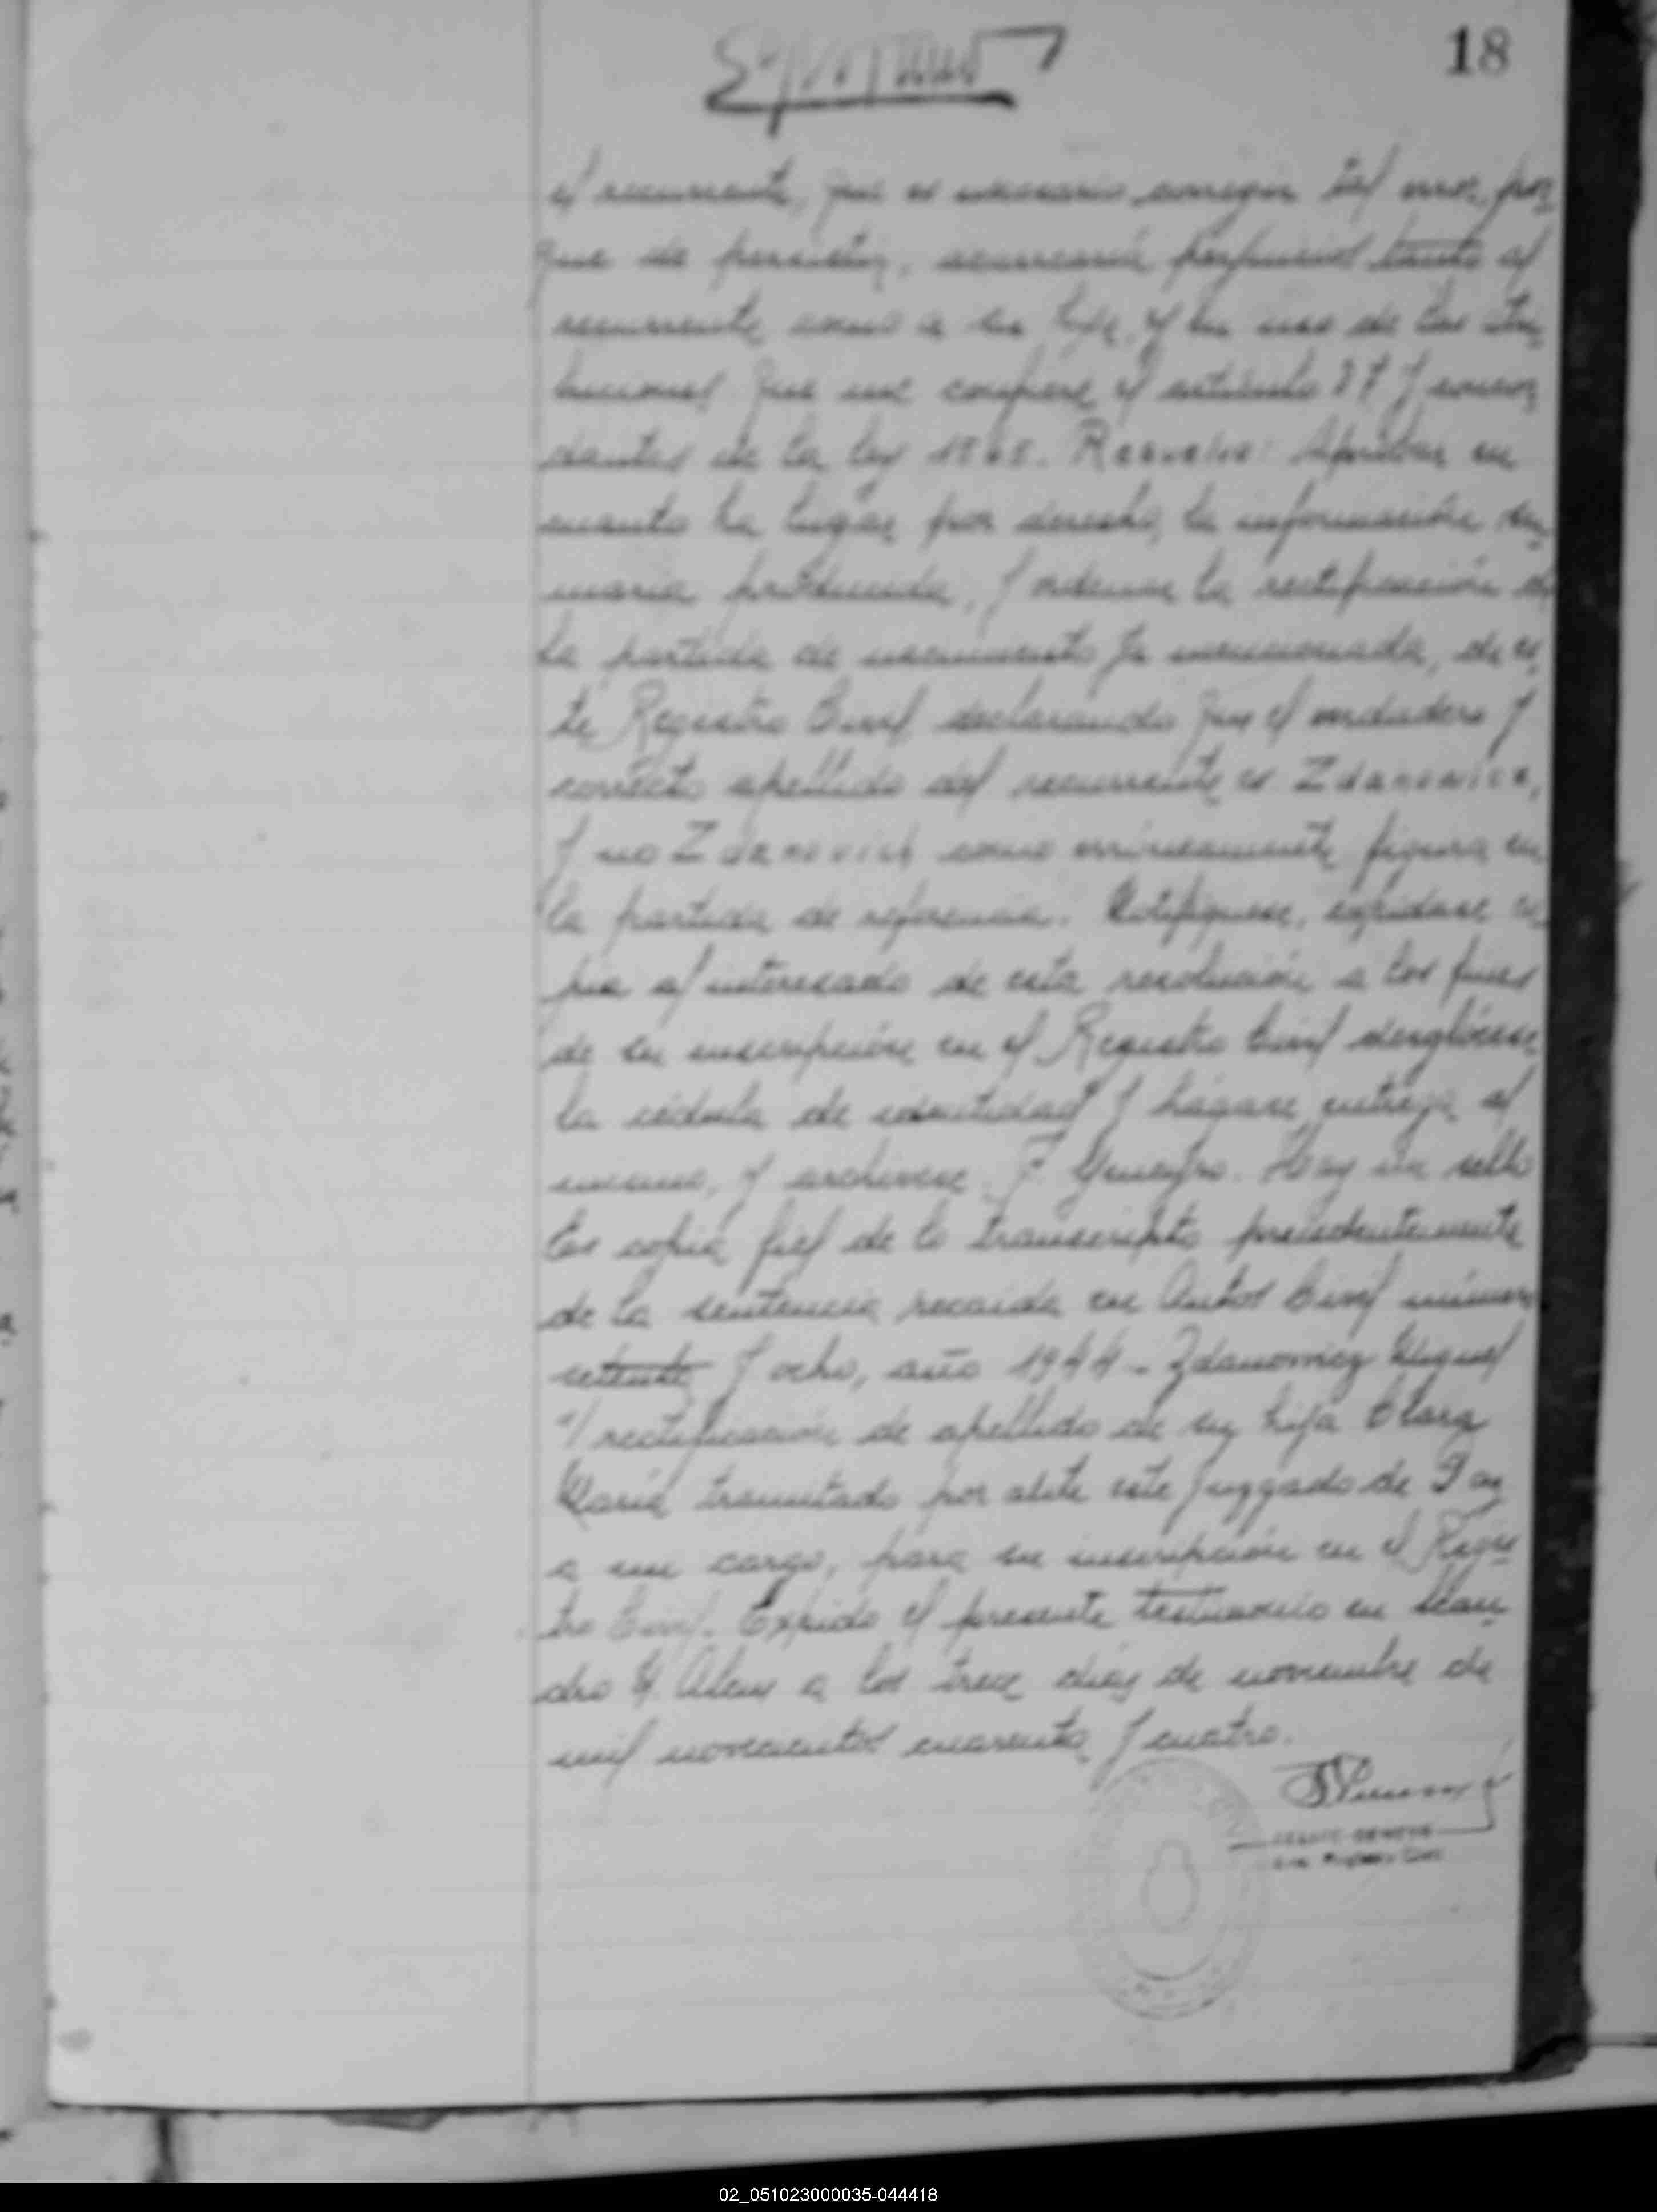 18
el recurrente, que es necesario corregir tal error, por-
que de persistir, acarrearía perjuicios tanto al
recurrente como a su hija, y en uso de las atri-
buciones que me confiere el artículo 27 y concor-
dantes de la ley 1565. Resuelvo: Aprobar en
cuanto ha lugar por derecho, la información su-
maria producida, y ordenar la rectificación de
la partida de nacimiento ya mencionada, de es-
te Registro Civil declarando que el verdadero y
correcto apellido del recurrente es Zdanowicz,
y no Zdanovich como erróneamente figura en
la partida de referencia. Notifíquese, expídase co-
pia al interesado de esta resolución a los fines
de su inscripción en el Registro Civil desglósese
la cédula de identidad y hágase entrega al
mismo, y archívese. Hay un sello
Es copia fiel de lo transcripto precedentemente
de la sentencia recaída en Autos Civil número
setenta y ocho, año 1944 - Zdanowicz Miguel
s/ rectificación de apellido de su hija Clara
María tramitado por ante este Juzgado de Paz
a mi cargo, para su inscripción en el Regis-
tro Civil. Expido el presente testimonio en Lean-
dro N. Alem a los trece días de noviembre de
mil novecientos cuarenta y cuatro.
02_051023000035-044418